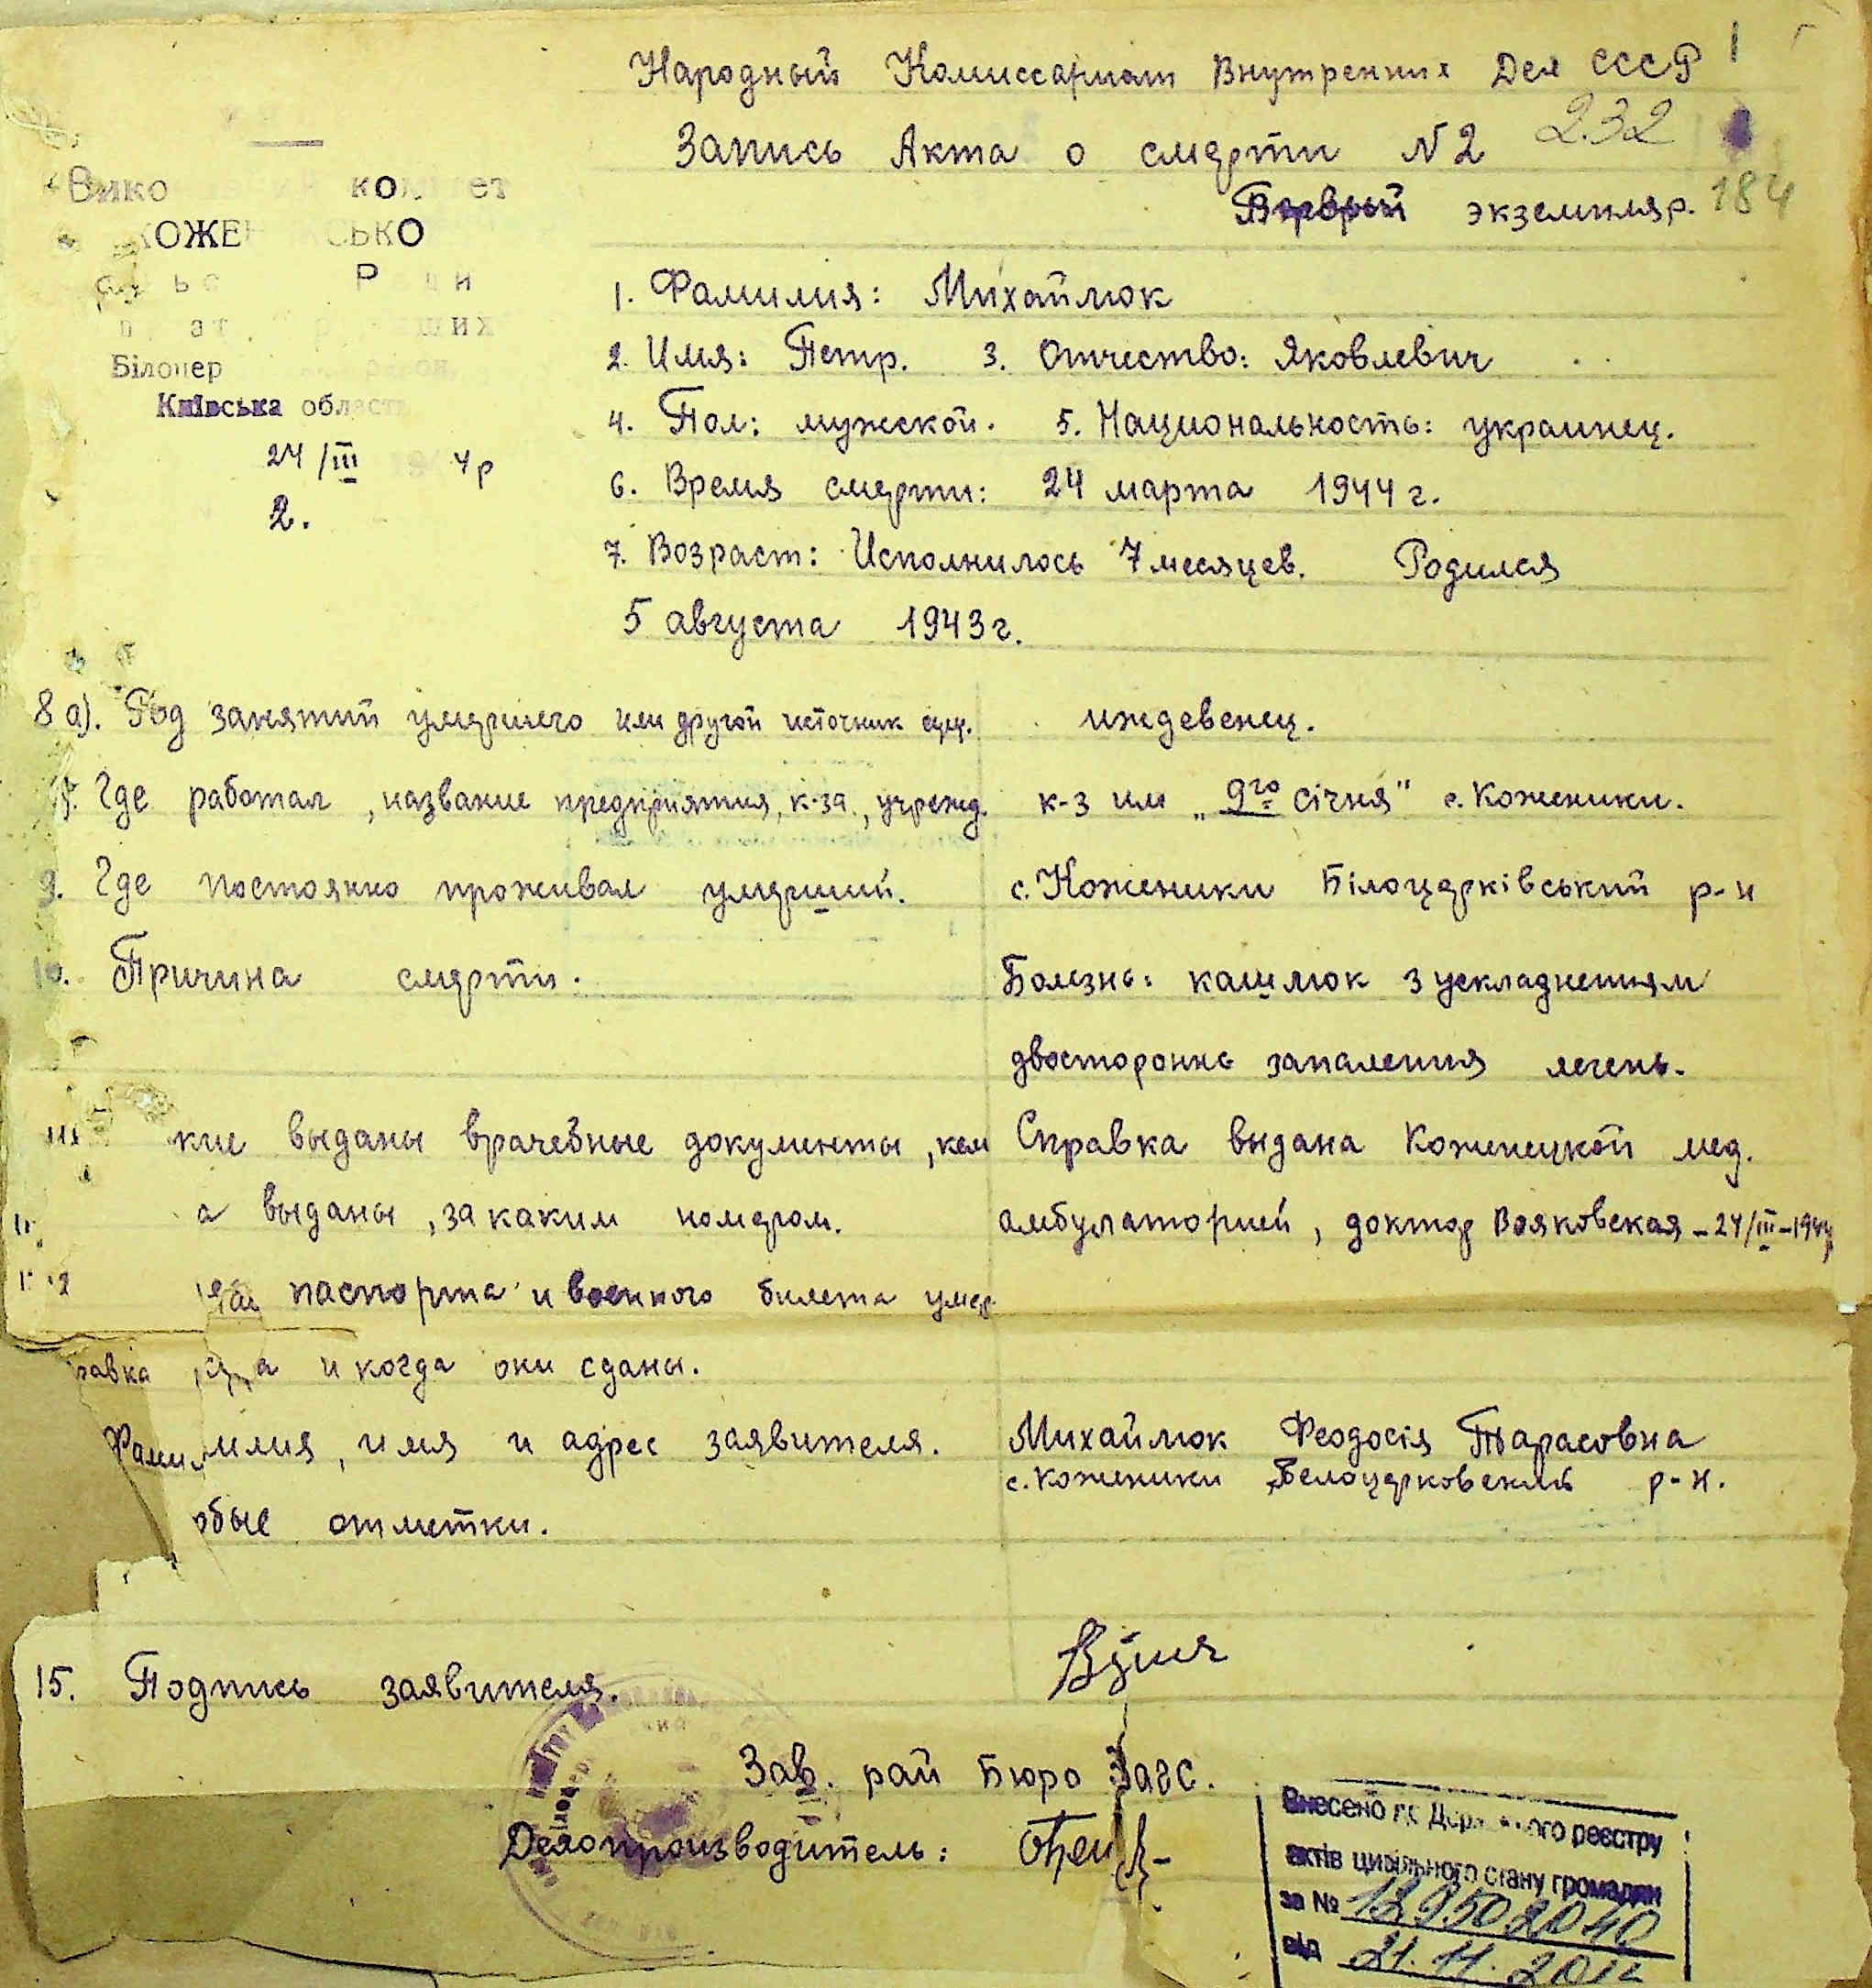 Народный Комиссариат Внутренних Дел СССР
Запись Акта о смерти №2 232
Первый экземпляр. 184
Вико ком тет
КОЖЕ СЬКО
Р и
Білоцер район,
Київська область
24/III 194 4р
2.
1. Фамилия: Михайлюк
2. Имя: Петр. 3. Отчество: Яковлевич
4. Пол: мужской. 5. Национальность: украинец.
6. Время смерти: 24 марта 1944 г.
7. Возраст: Исполнилось 7 месяцев. Родился
5 августа 1943 г.
8 а). Род занятий умершего или другой источник сущ. иждевенец.
Где работал, название предприятия, к-за, учрежд. к-з им „9го січня" с. Коженики.
9. Где постоянно проживал умерший. с. Коженики Білоцерківський р-н
10. Причина смерти. Болезнь: кашлюк з ускладненням
двосторонне запалення легень.
кие выданы врачебные документы, кем Справка выдана Коженецкой мед.
а выданы, за каким номером. амбулаторией, доктор Вояковская - 24/III-1944
паспорта и военного билета умер
и когда они сданы.
Фамилия, имя и адрес заявителя. Михайлюк Феодосія Тарасовна
с. Коженики Белоцерковский р-н.
обые отметки.
15. Подпись заявителя.
Зав. рай Бюро Загс.
Делопроизводитель:
Внесено до Державного реєстру
актів цивільного стану громадян
за №
від 21.11.2012